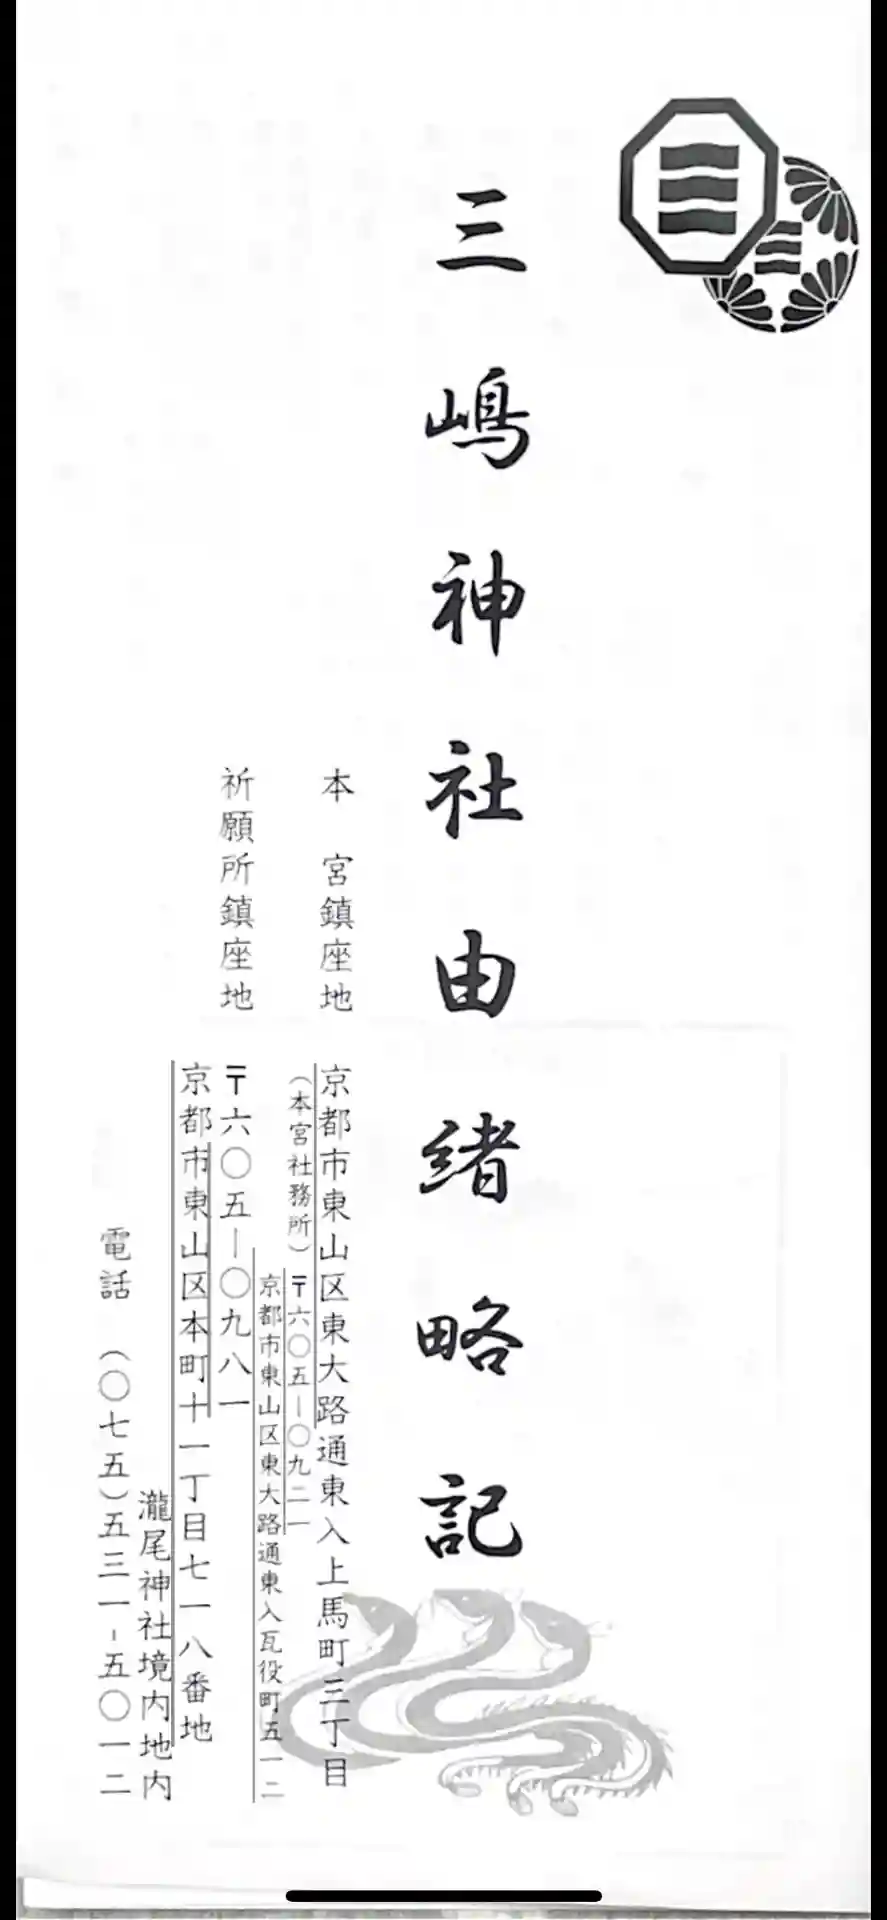 三嶋神社由緒略記
本　宮鎮座地
京都市東山区東大路通東入上馬町三丁目
（本宮社務所）〒六〇五―〇九二一
京都市東山区東大路通東入瓦役町五一二
祈願所鎮座地
〒六〇五―〇九八一
京都市東山区本町十一丁目七一八番地
瀧尾神社境内地内
電話　（〇七五）五三一-五〇一二